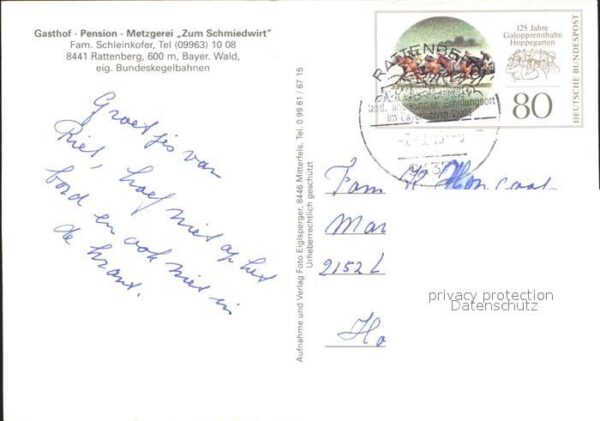 Gasthof · Pension · Metzgerei „Zum Schmiedwirt"
Fam. Schleinkofer, Tel (09963) 10 08
8441 Rattenberg, 600 m, Bayer. Wald,
eig. Bundeskegelbahnen
Groetjes van
Riet, hoef niet op het
bord en ook niet in
de krant.
Aufnahme und Verlag Foto Eiglsperger, 8446 Mitterfels, Tel. 0 99 61 / 67 15
Urheberrechtlich geschützt
125 Jahre
Galopprennbahn
Hoppegarten
DEUTSCHE BUNDESPOST
80
RATTENBERG
Erholungsort
im Bayerischen Wald
Fam
Mar
2152 L
Ho
privacy protection
Datenschutz